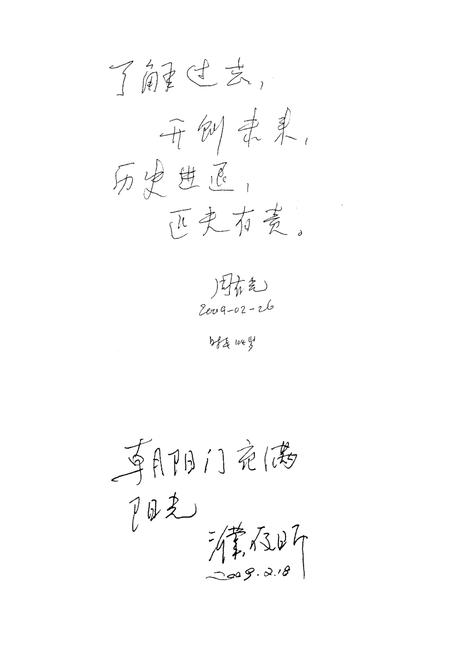 了解过去，
开创未来，
历史进退，
匹夫有责。
周有光
2009-02-26
时年104岁
朝阳门充满
阳光
濮存昕
2009.2.18